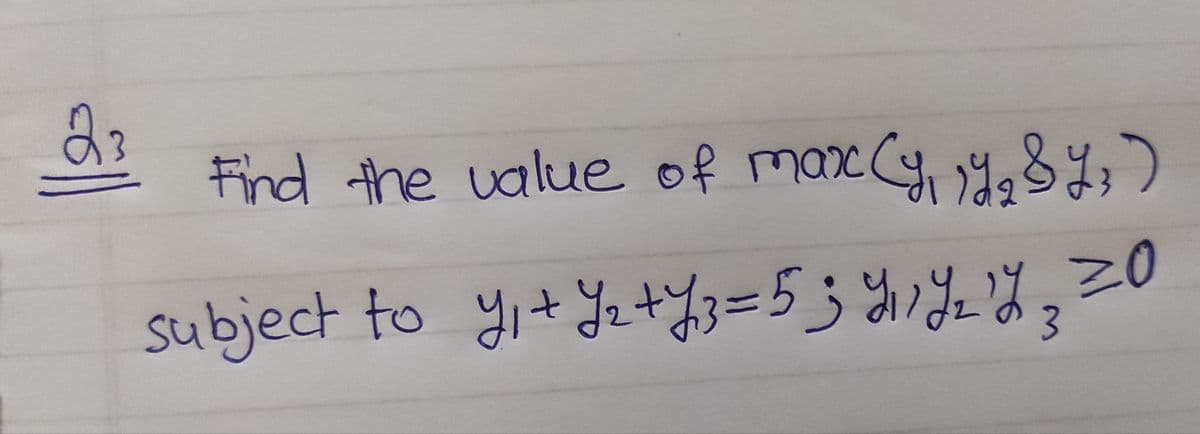 Q3
Find the value of max(y₁, y₂ & y₃)
subject to y₁ + y₂ + y₃ = 5 ; y₁, y₂, y₃ ≥ 0